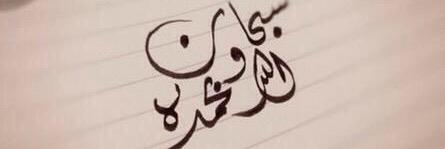 سبحان
الله وبحمده